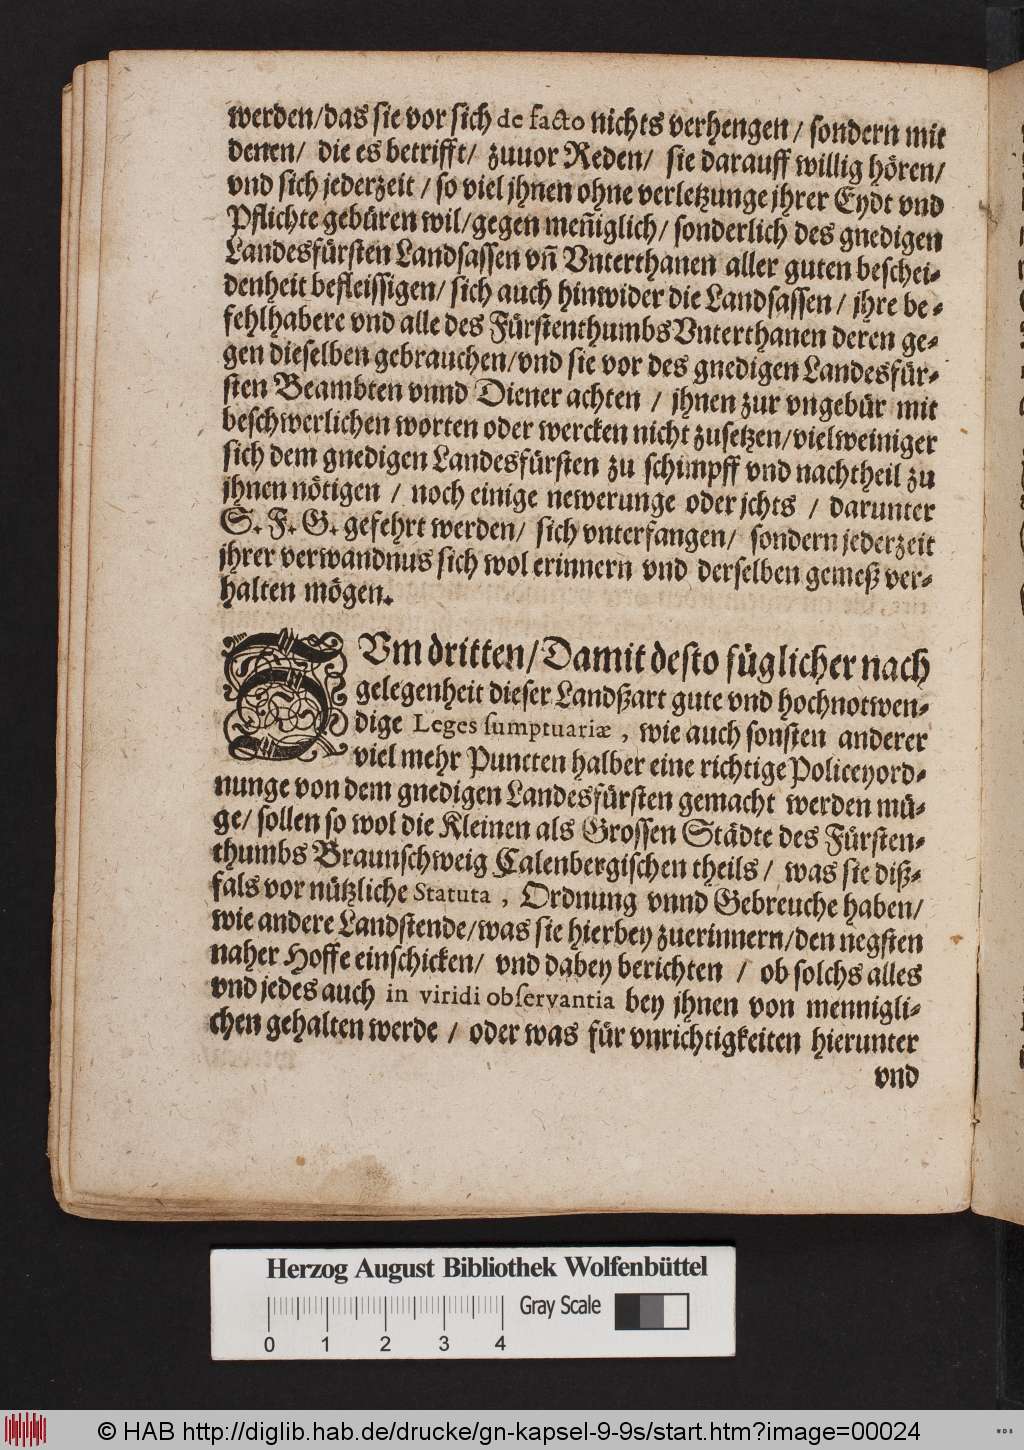 werden/das sie vor sich de facto nichts verhengen/ sondern mit
denen/ die es betrifft/ zuuor Reden/ sie darauff willig hören/
vnd sich jederzeit/ so viel jhnen ohne verletzunge jhrer Eydt vnd
Pflichte gebüren wil/gegen meñiglich/ sonderlich des gnedigen
Landesfürsten Landsassen vñ Vnterthanen aller guten beschei-
denheit befleissigen/ sich auch hinwider die Landsassen/ jhre be-
fehlhabere vnd alle des Fürstenthumbs Vnterthanen deren ge-
gen dieselben gebrauchen/vnd sie vor des gnedigen Landesfür-
sten Beambten vnnd Diener achten / jhnen zur vngebür mit
beschwerlichen worten oder wercken nicht zusetzen/vielweiniger
sich dem gnedigen Landesfürsten zu schimpff vnd nachtheil zu
jhnen nötigen / noch einige newerunge oder jchts / darunter
S. F. G. gefehrt werden/ sich vnterfangen/ sondern jederzeit
jhrer verwandnus sich wol erinnern vnd derselben gemeß ver-
halten mögen.
ZVm dritten/Damit desto füglicher nach
gelegenheit dieser Landßart gute vnd hochnotwen-
dige Leges sumptuariæ, wie auch sonsten anderer
viel mehr Puncten halber eine richtige Policeyord-
nunge von dem gnedigen Landesfürsten gemacht werden mü-
ge/ sollen so wol die Kleinen als Grossen Städte des Fürsten-
thumbs Braunschweig Calenbergischen theils/ was sie diß-
fals vor nützliche Statuta, Ordnung vnnd Gebreuche haben/
wie andere Landstende/was sie hierbey zuerinnern/den negsten
naher Hoffe einschicken/ vnd dabey berichten / ob solchs alles
vnd jedes auch in viridi observantia bey jhnen von mennigli-
chen gehalten werde / oder was für vnrichtigkeiten hierunter
vnd
Herzog August Bibliothek Wolfenbüttel
Gray Scale
0 1 2 3 4
© HAB http://diglib.hab.de/drucke/gn-kapsel-9-9s/start.htm?image=00024